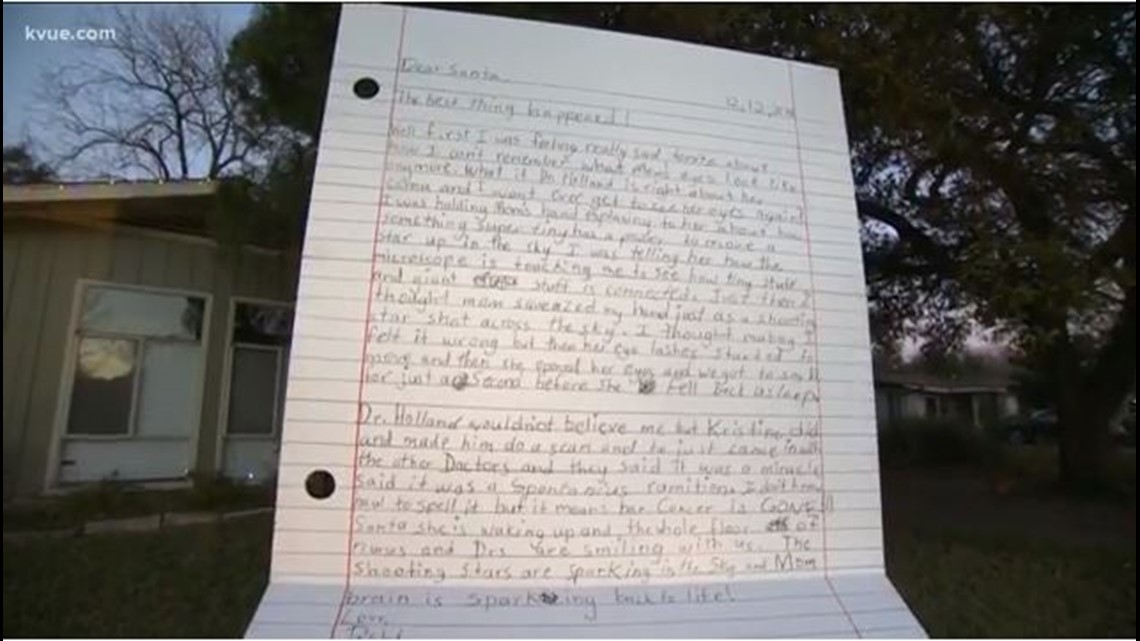 kvue.com
Dear Santa
12.12
The best thing happened!
Well first I was feeling really sad, tonite about
how I can't remember what moms eyes look like
anymore. What if Dr. Holland is right about her
coma and I wont ever get to see her eyes again?
I was holding Moms hand explaining to her about how
something super tiny has a power to move a
star up in the sky. I was telling her how the
microscope is teaching me to see how tiny stuff
and giant stuff is connected. Just then I
thought mom squeazed my hand just as a shooting
star shot across the sky. I thought maybe I
felt it wrong but then her eye lashes started to
move and then she opened her eyes and we got to smile
for just a second before she fell back asleep.
Dr. Holland wouldnot believe me but Kristine did
and made him do a scan and he just came in with
the other Doctors and they said it was a miracle
said it was a Spontanius ramition. I don't know
how to spell it but it means her Cancer is GONE!!!
Santa she is waking up and the whole floor of
nurses and Drs are smiling with us. The
shooting stars are sparking in the Sky and Mom
brain is sparking back to life!
Love,